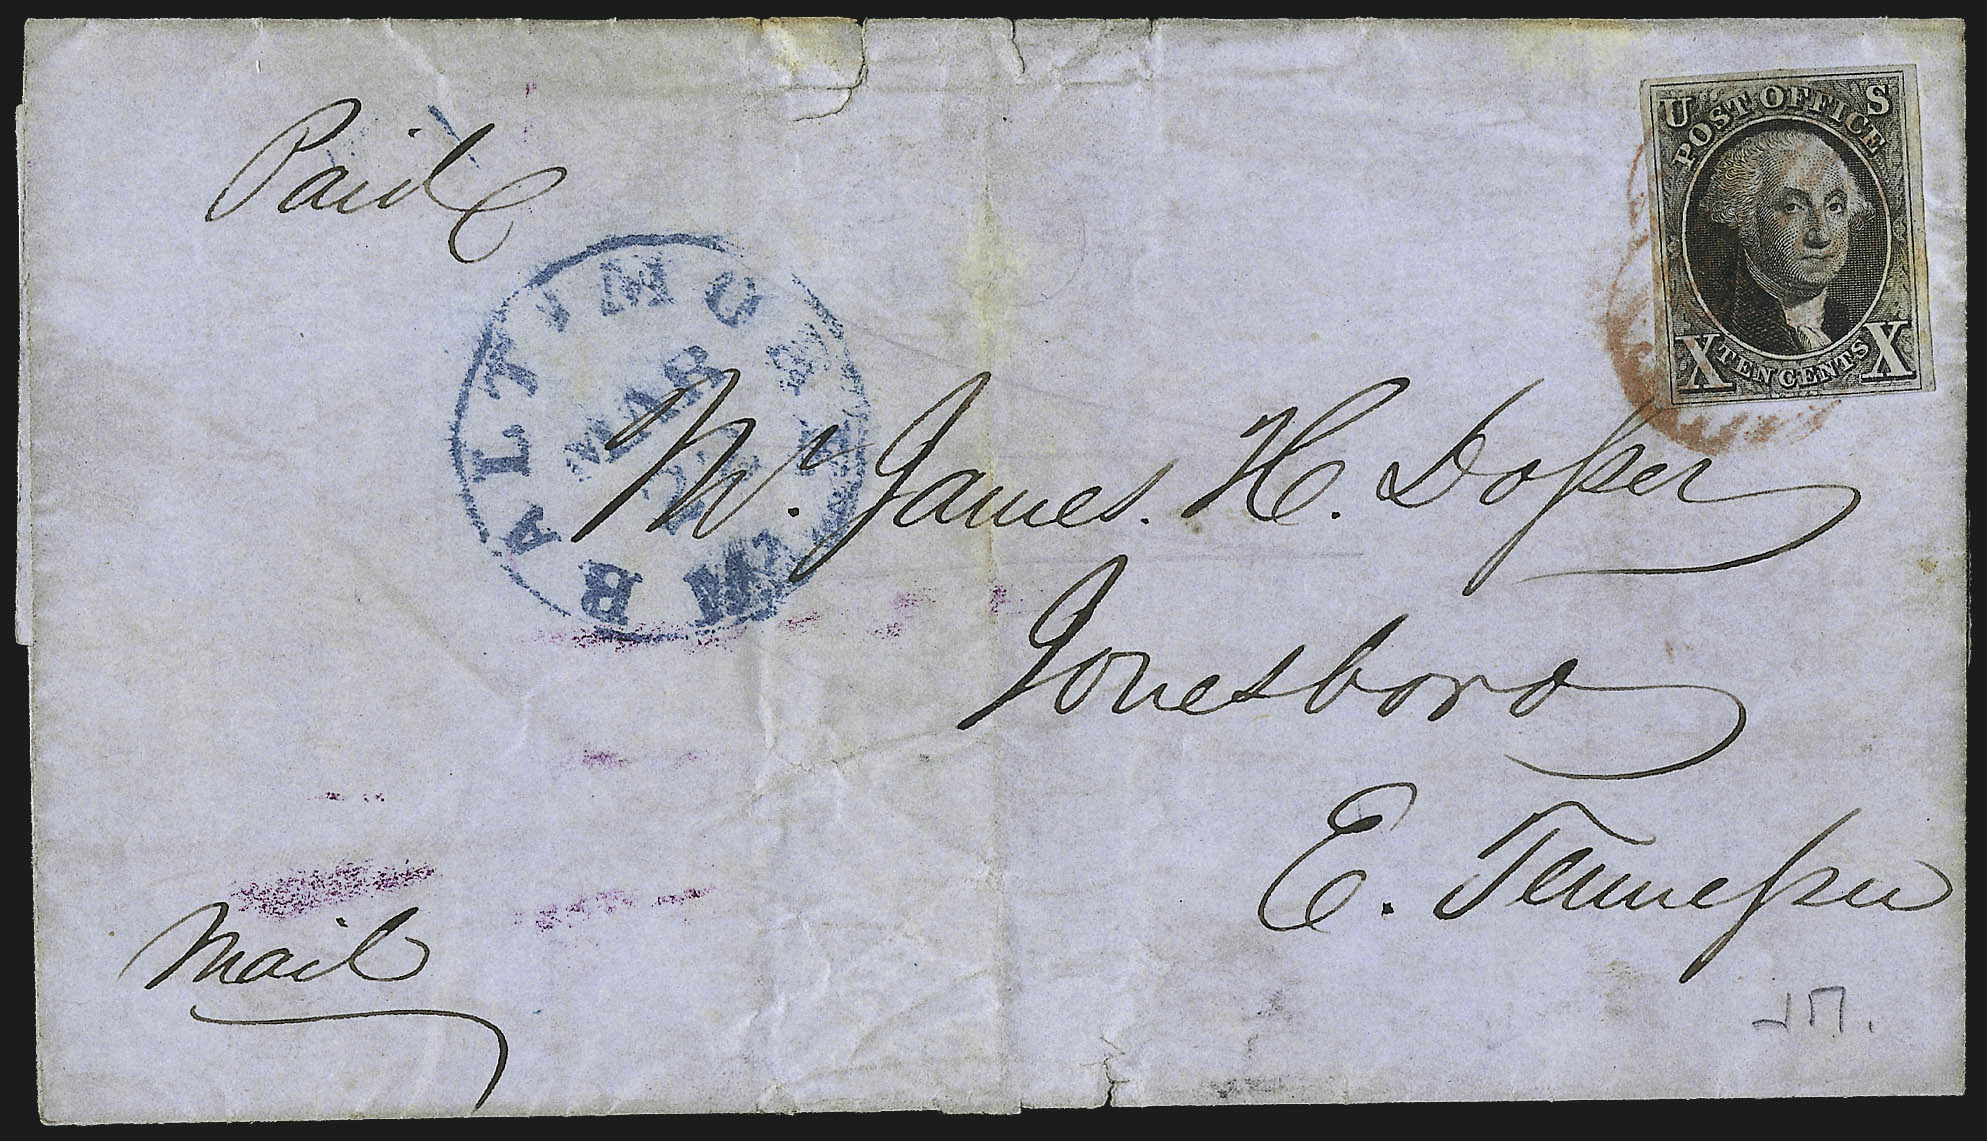 Paid
U S
POST OFFICE
X TEN CENTS X
BALTIMORE Md.
MAR
Mr. James. H. Dosser
Jonesboro
E. Tennessee
Mail